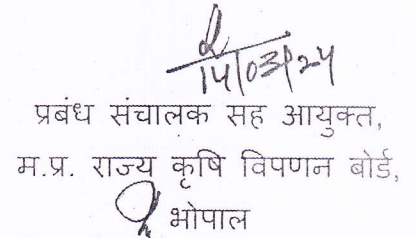 14/03/24
प्रबंध संचालक सह आयुक्त,
म.प्र. राज्य कृषि विपणन बोर्ड,
भोपाल